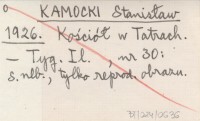 KAMOCKI Stanisław
1926. Kościół w Tatrach.
– Tyg. Il., nr 30:
s. nlb., tylko reprod. obrazu.